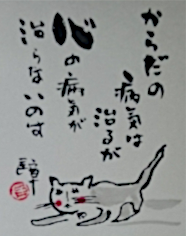 からだの
病気は
治るが
心の病気が
治らないのす